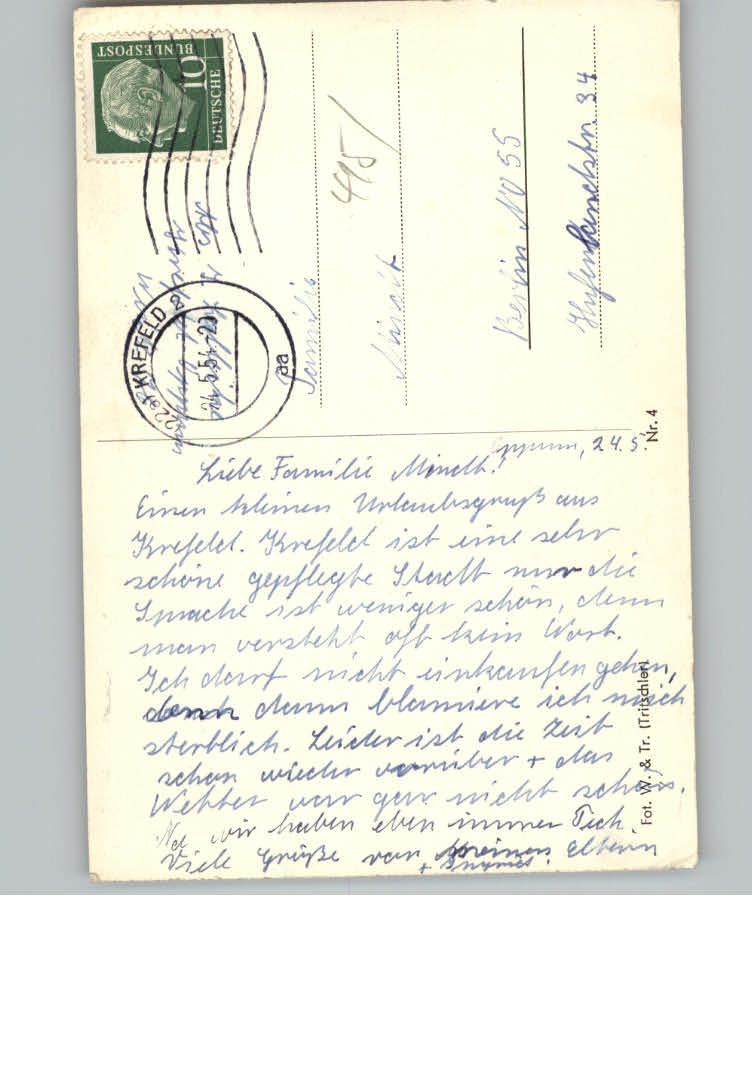 DEUTSCHE
BUNDESPOST
10
KREFELD 2
24.5.54-20
aa
Familie
495/
Berlin NW 55
Hufelandstr. 34
Nr. 4
24.5.
Liebe Familie
Einen kleinen Urlaubsgruß aus
Krefeld. Krefeld ist eine sehr
schöne gepflegte Stadt nur die
Sprache ist weniger schön, denn
man versteht oft kein Wort.
Ich darf nicht einkaufen gehen,
denn dann blamiere ich mich
sterblich. Leider ist die Zeit
schon wieder vorüber + das
Wetter war gar nicht schön.
Na wir haben eben immer Pech.
Viele Grüße von meinen Eltern
Fot. W. & Tr. (Tritschler)